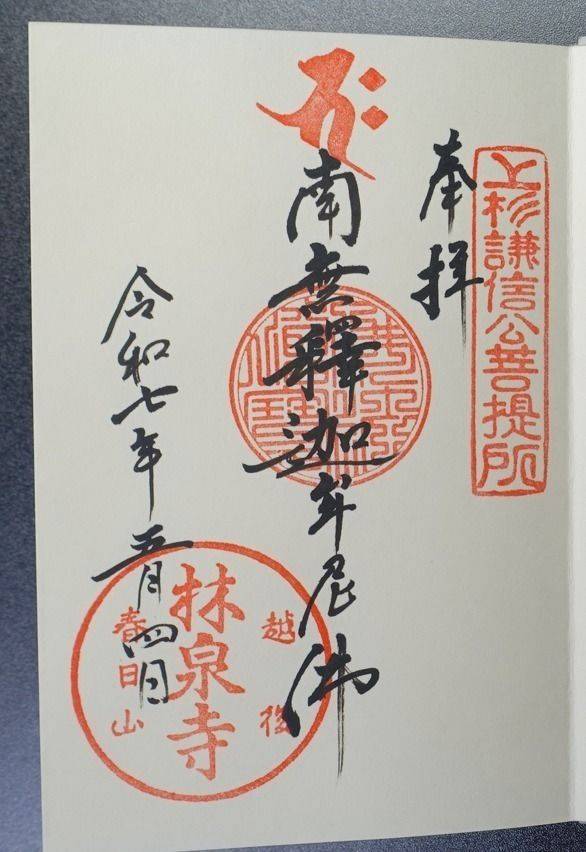 上杉謙信公菩提所
奉拝
南無釋迦牟尼佛
令和七年五月四日
越後
林泉寺
春日山